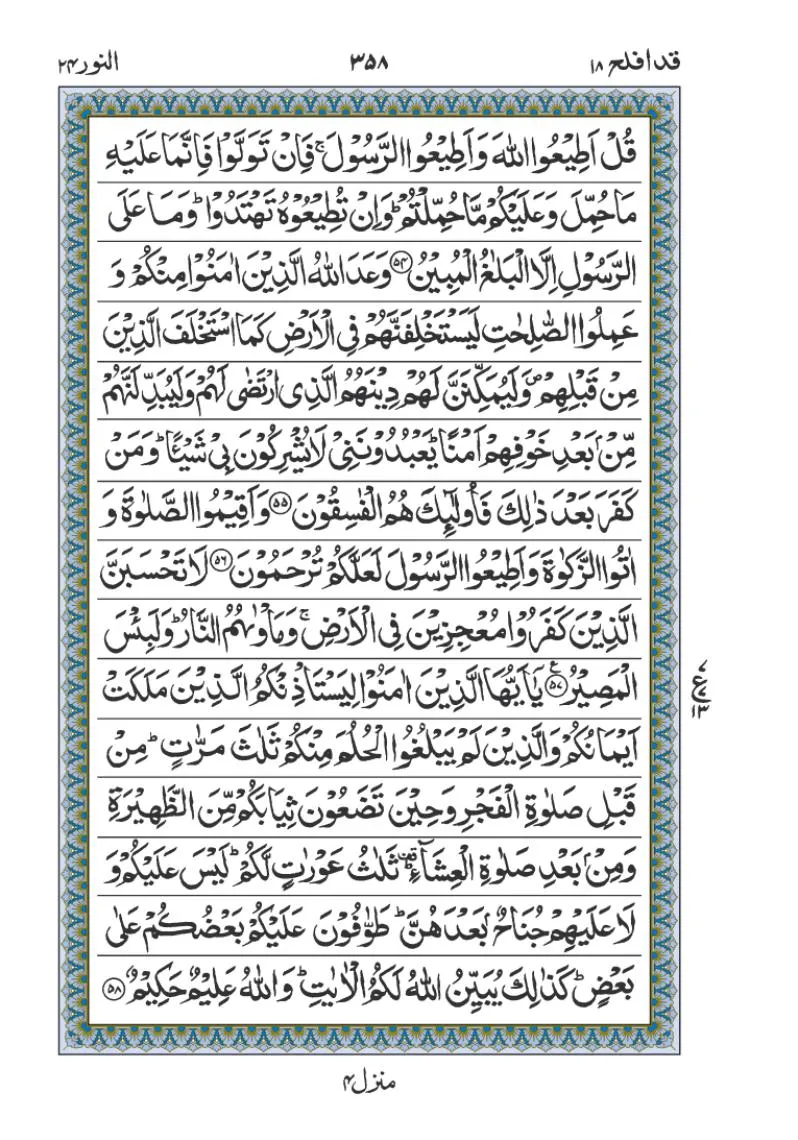 قدافلح ۱۸ ۳۵۸ النور ۲۴
قُلْ اَطِیْعُوا اللّٰهَ وَ اَطِیْعُوا الرَّسُوْلَ ۚ فَاِنْ تَوَلَّوْا فَاِنَّمَا عَلَیْهِ
مَا حُمِّلَ وَ عَلَیْكُمْ مَّا حُمِّلْتُمْ ؕ وَ اِنْ تُطِیْعُوْهُ تَهْتَدُوْا ؕ وَ مَا عَلَی
الرَّسُوْلِ اِلَّا الْبَلٰغُ الْمُبِیْنُ ﴿۵۴﴾ وَعَدَ اللّٰهُ الَّذِیْنَ اٰمَنُوْا مِنْكُمْ وَ
عَمِلُوا الصّٰلِحٰتِ لَیَسْتَخْلِفَنَّهُمْ فِی الْاَرْضِ كَمَا اسْتَخْلَفَ الَّذِیْنَ
مِنْ قَبْلِهِمْ ۪ وَ لَیُمَكِّنَنَّ لَهُمْ دِیْنَهُمُ الَّذِی ارْتَضٰی لَهُمْ وَ لَیُبَدِّلَنَّهُمْ
مِّنْۢ بَعْدِ خَوْفِهِمْ اَمْنًا ؕ یَعْبُدُوْنَنِیْ لَا یُشْرِكُوْنَ بِیْ شَیْـًٔا ؕ وَ مَنْ
كَفَرَ بَعْدَ ذٰلِكَ فَاُولٰٓىِٕكَ هُمُ الْفٰسِقُوْنَ ﴿۵۵﴾ وَ اَقِیْمُوا الصَّلٰوةَ وَ
اٰتُوا الزَّكٰوةَ وَ اَطِیْعُوا الرَّسُوْلَ لَعَلَّكُمْ تُرْحَمُوْنَ ﴿۵۶﴾ لَا تَحْسَبَنَّ
الَّذِیْنَ كَفَرُوْا مُعْجِزِیْنَ فِی الْاَرْضِ ۚ وَ مَاْوٰىهُمُ النَّارُ ؕ وَ لَبِئْسَ
الْمَصِیْرُ ﴿۵۷﴾ یٰۤاَیُّهَا الَّذِیْنَ اٰمَنُوْا لِیَسْتَاْذِنْكُمُ الَّذِیْنَ مَلَكَتْ
اَیْمَانُكُمْ وَ الَّذِیْنَ لَمْ یَبْلُغُوا الْحُلُمَ مِنْكُمْ ثَلٰثَ مَرّٰتٍ ؕ مِنْ
قَبْلِ صَلٰوةِ الْفَجْرِ وَ حِیْنَ تَضَعُوْنَ ثِیَابَكُمْ مِّنَ الظَّهِیْرَةِ
وَ مِنْۢ بَعْدِ صَلٰوةِ الْعِشَآءِ ؕ۫ ثَلٰثُ عَوْرٰتٍ لَّكُمْ ؕ لَیْسَ عَلَیْكُمْ وَ
لَا عَلَیْهِمْ جُنَاحٌۢ بَعْدَهُنَّ ؕ طَوّٰفُوْنَ عَلَیْكُمْ بَعْضُكُمْ عَلٰی
بَعْضٍ ؕ كَذٰلِكَ یُبَیِّنُ اللّٰهُ لَكُمُ الْاٰیٰتِ ؕ وَ اللّٰهُ عَلِیْمٌ حَكِیْمٌ ﴿۵۸﴾
منزل ۴